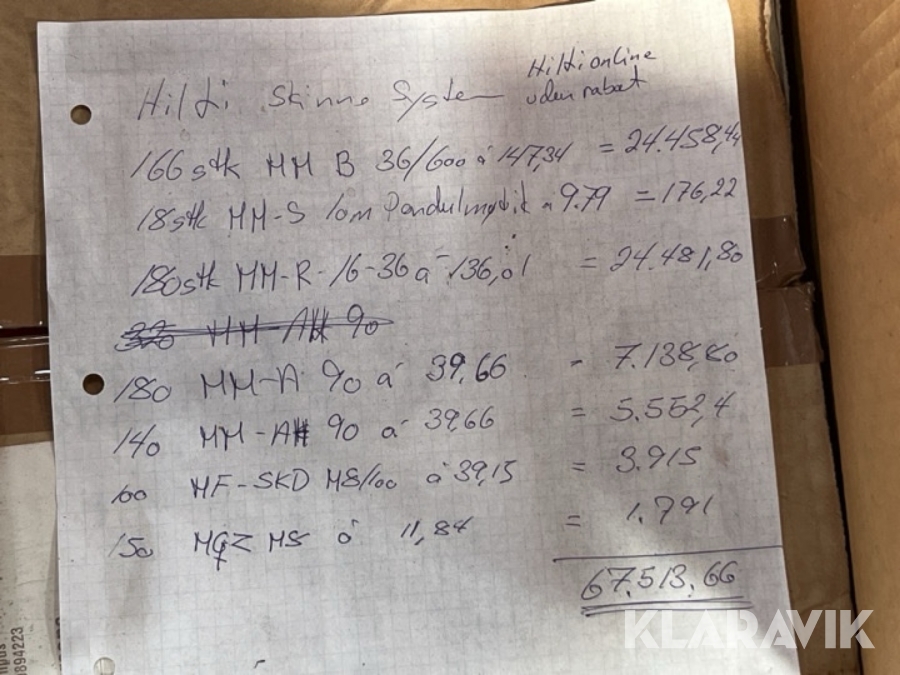 Hilti Skinne System
Hilti online
uden rabat
166 stk MM B 36/600 á 147,34 = 24.458,44
18 stk MM-S á 9.79 = 176,22
180 stk MM-R-16-36 á 136,01 = 24.481,80
320 MM-AH 90
180 MM-A 90 á 39,66 - 7.138,80
140 MM-AH 90 á 39,66 = 5.552,4
100 MF-SKD M8/100 á 39,15 = 3.915
150 MQZ M8 á 11,84 = 1.791
67.513,66
894223
KLARAVIK